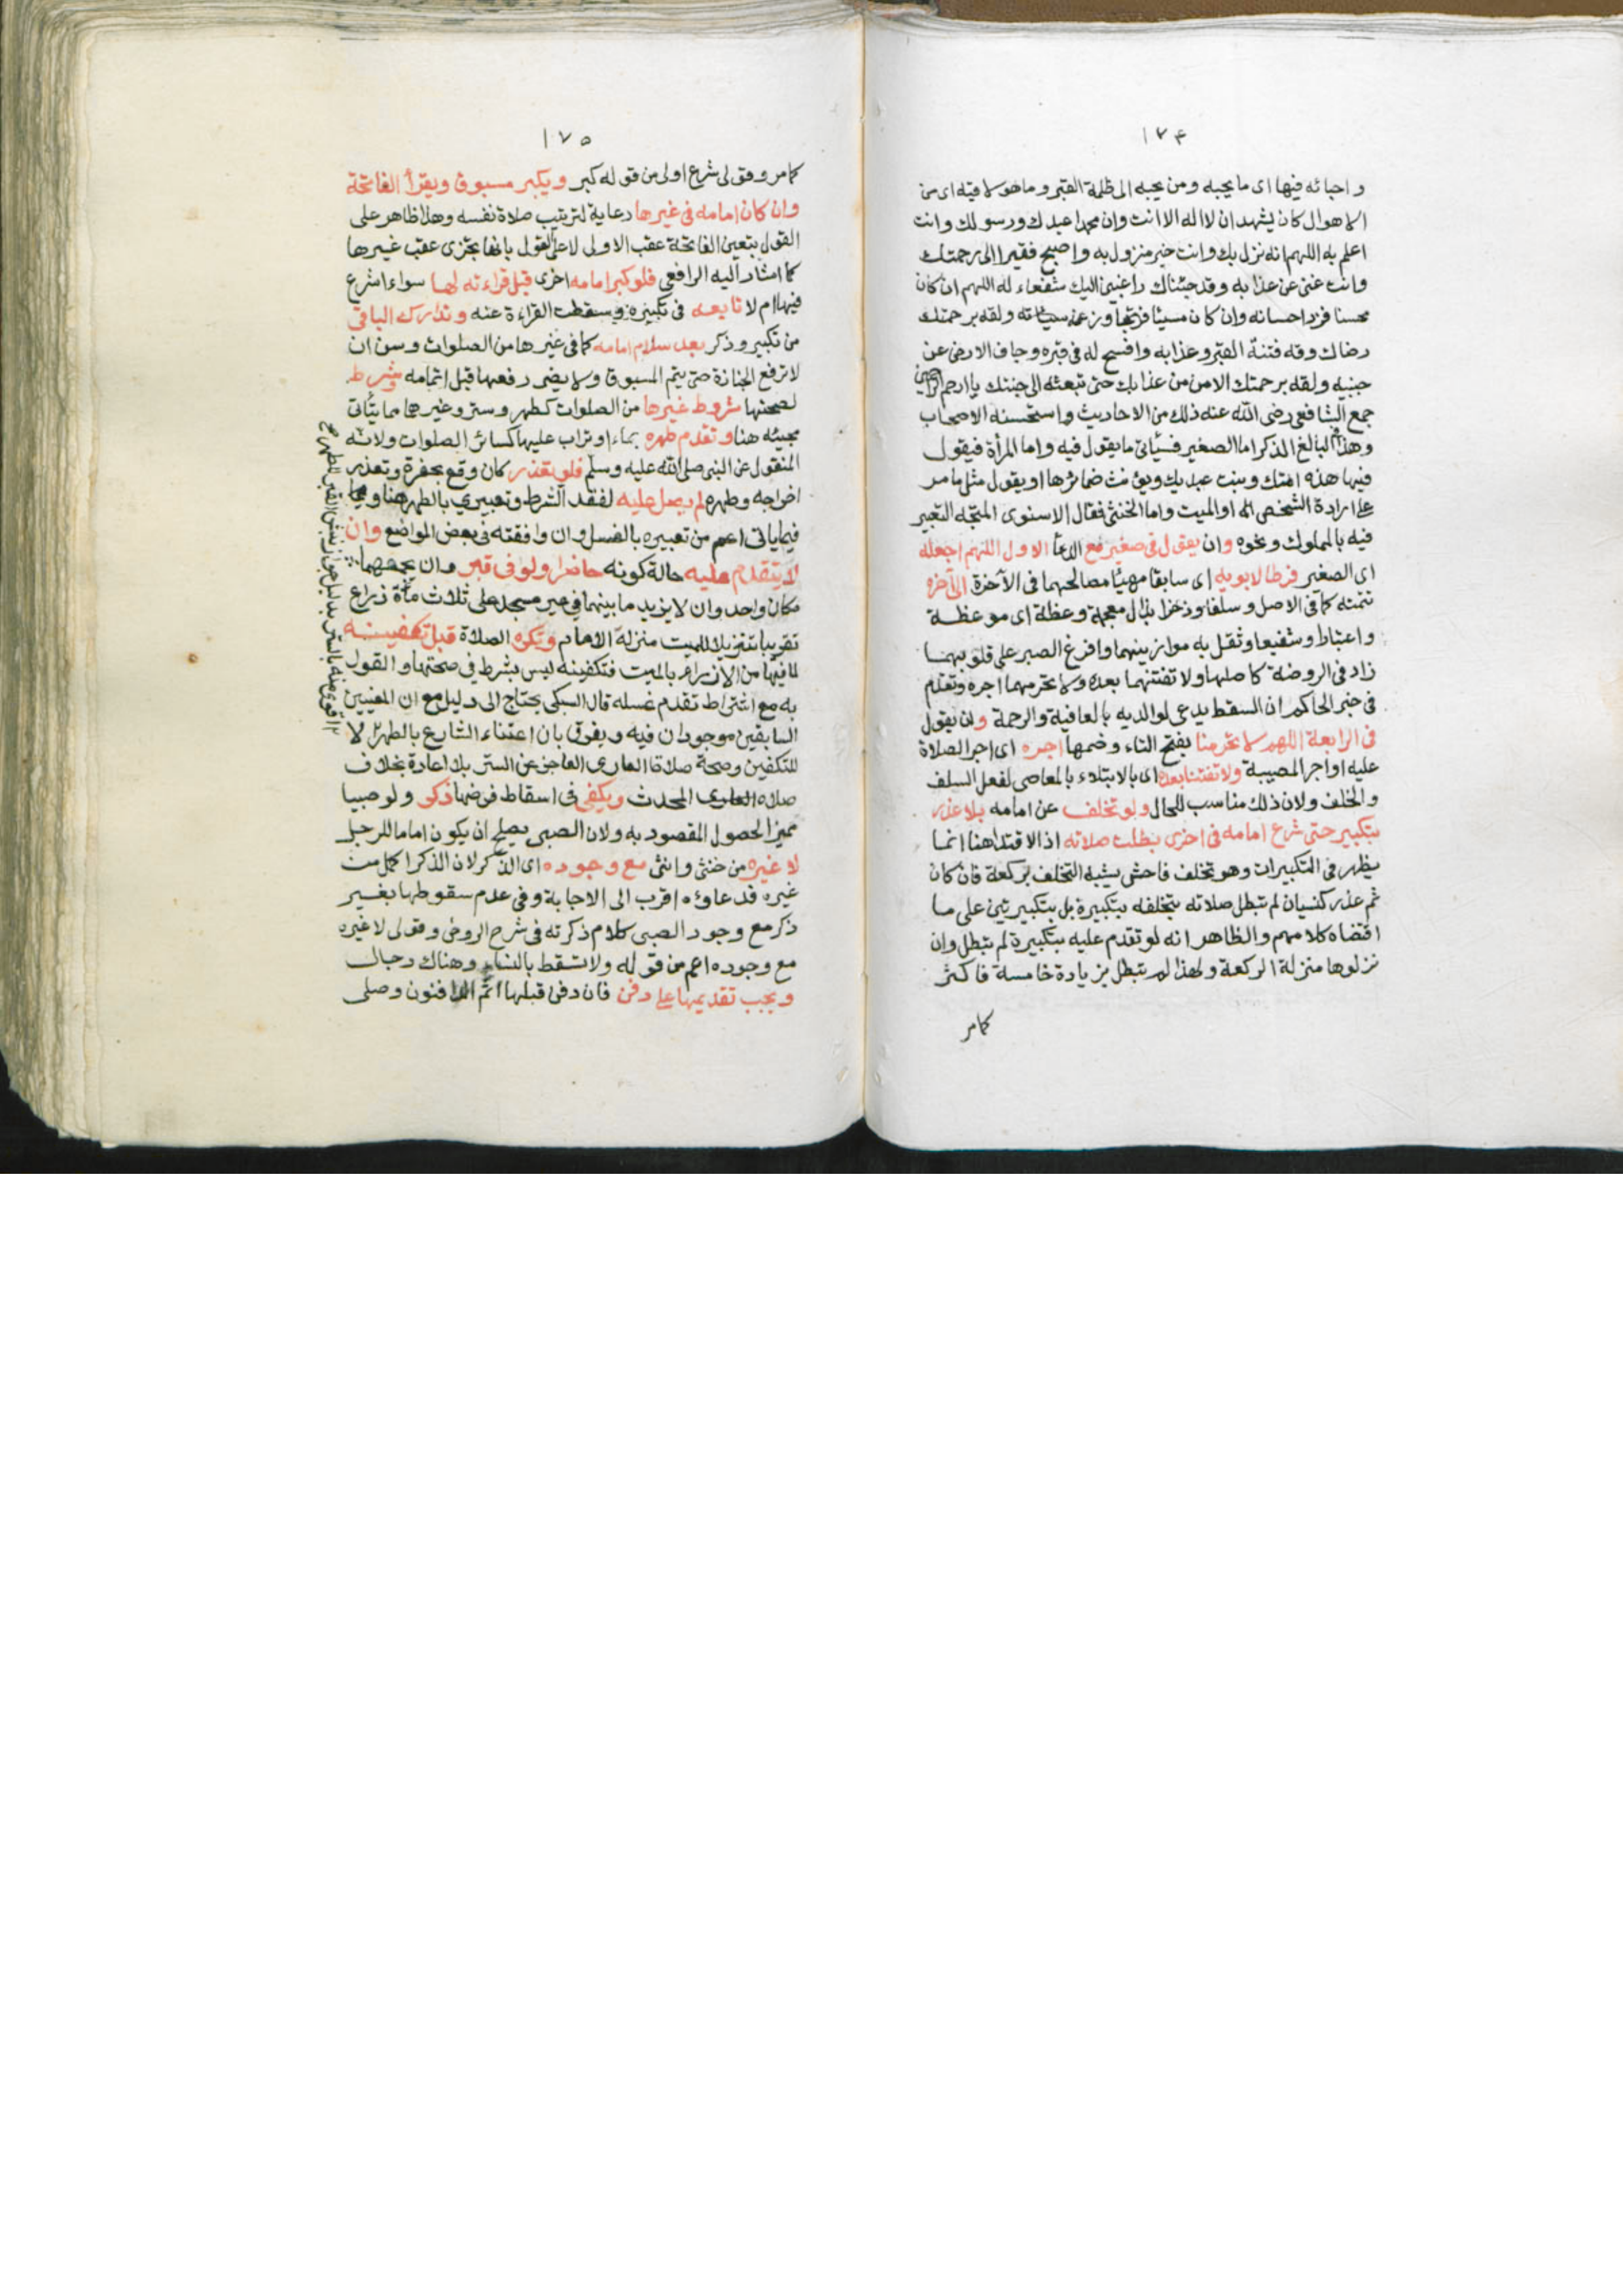 ١٧٤
واحبائه فيها اى ما يحبه ومن يحبه الى ظلمة القبر وما هو لاقيه اى من
الاهوال كان يشهد ان لا اله الا انت وان محمدا عبدك ورسولك وانت
اعلم به اللهم انه نزل بك وانت خير منزول به واصبح فقيرا الى رحمتك
وانت غنى عن عذابه وقد جئناك راغبين اليك شفعاء له اللهم ان كان
محسنا فزد احسانه وان كان مسيئا فتجاوز عنه سيئاته ولقه برحمتك
رضاك وقه فتنة القبر وعذابه وافسح له فى قبره وجاف الارض عن
جنبيه ولقه برحمتك الامن من عذابك حتى تبعثه الى جنتك يا ارحم الراحمين
جمع الشافعى رضى الله عنه ذلك من الاحاديث واستحسنه الاصحاب
وهذا فى البالغ الذكر اما الصغير فسيأتى ما يقول فيه واما المرأة فيقول
فيها هذه امتك وبنت عبديك ويؤنث ضمائرها او يقول مثل ما مر
على ارادة الشخص او الميت واما الخنثى فقال الاسنوى المتجه التعبير
فيه بالمملوك ونحوه وان يقول فى صغير مع الدعا الاول اللهم اجعله
اى الصغير فرطا لابويه اى سابقا مهيئا مصالحهما فى الآخرة الى آخره
تتمته كما فى الاصل وسلفا وذخرا بذال معجمة وعظة اى موعظة
واعتباطا وشفيعا وثقل به موازينهما وافرغ الصبر على قلوبهما
زاد فى الروضة كاصلها ولا تفتنهما بعده ولا تحرمهما اجره وتقدم
فى خبر الحاكم ان السقط يدعى لوالديه بالعافية والرحمة وان يقول
فى الرابعة اللهم لا تحرمنا بفتح التاء وضمها اجره اى اجر الصلاة
عليه او اجر المصيبة ولا تفتنا بعده اى بالابتلاء بالمعاصى لفعل السلف
والخلف ولان ذلك مناسب للحال ولو تخلف عن امامه بلا عذر
بتكبير حتى شرع امامه فى اخرى بطلت صلاته اذ الاقتدا هنا انما
يظهر فى التكبيرات وهو تخلف فاحش يشبه التخلف بركعة فان كان
ثم عذر كنسيان لم تبطل صلاته بتخلفه بتكبيرة بل بتكبيرتين على ما
اقتضاه كلامهم والظاهر انه لو تقدم عليه بتكبيرة لم تبطل وان
نزلوها منزلة الركعة ولهذا لم تبطل بزيادة خامسة فاكثر
كما مر
١٧٥
كما مر وقولى شرع اولى من قوله كبر ويكبر مسبوق ويقرأ الفاتحة
وان كان امامه فى غيرها رعاية لترتيب صلاة نفسه وهذا ظاهر على
القول بتعين الفاتحة عقب الاولى لا على القول بانها تجزى عقب غيرها
كما اشار اليه الرافعى فلو كبر امامه اخرى قبل قراءته لها سواء اشرع
فيها ام لا تابعه فى تكبيره وسقطت القراءة عنه وتدارك الباقى
من تكبير وذكر بعد سلام امامه كما فى غيرها من الصلوات وسن ان
لا ترفع الجنازة حتى يتم المسبوق ولا يضر رفعها قبل اتمامه وشرط
لصحتها شروط غيرها من الصلوات كطهر وستر وغيرها مما يتأتى
مجيئه هنا وتقدم طهره بماء او تراب عليها كسائر الصلوات ولانه
المنقول عن النبى صلى الله عليه وسلم فلو تعذر كان وقع بحفرة وتعذر
اخراجه وطهره لم يصل عليه لفقد الشرط وتعبيرى بالطهر هنا وفيما
فيما ياتى اعم من تعبيره بالغسل وان وافقته فى بعض المواضع وان
لا يتقدم عليه حالة كونه حاضرا ولو فى قبر وان يجمعهما
مكان واحد وان لا يزيد ما بينهما فى غير مسجد على ثلاث مأة ذراع
تقريبا تنزيلا للميت منزلة الامام وتكره الصلاة قبل تكفينه
لما فيها من الازراء بالميت فتكفينه ليس بشرط فى صحتها والقول
به مع اشتراط تقدم غسله قال السبكى يحتاج الى دليل مع ان المعنيين
السابقين موجودان فيه ويفرق بان اعتناء الشارع بالطهر لا
للتكفين وصحة صلاة العارى العاجز عن الستر بلا اعادة بخلاف
صلاة المحدث ويكفى فى اسقاط فرضها ذكر ولو صبيا
مميزا لحصول المقصود به ولان الصبى يصلح ان يكون اماما للرجل
لا غيره من خنثى وانثى مع وجوده اى الذكر لان الذكر اكمل من
غيره فدعاؤه اقرب الى الاجابة وفى عدم سقوطها بغير
ذكر مع وجود الصبى كلام ذكرته فى شرح الروض وقولى لا غيره
مع وجوده اعم من قوله ولا تسقط بالنساء وهناك رجال
ويجب تقديمها على دفن فان دفن قبلها اثم الدافنون وصلى
اقوى منه بالستر بدليل جواز نبش القبر للطهر